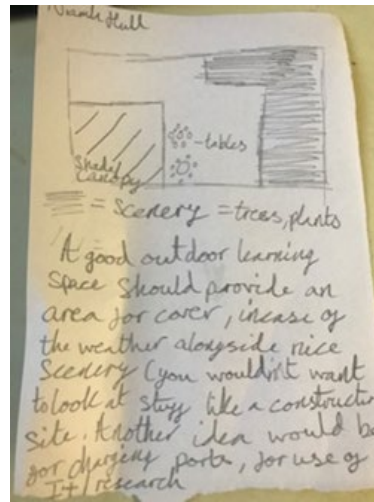 Niamh Hull
-tables
Shade/
Canopy
= Scenery = trees, plants
A good outdoor learning
space should provide an
area for cover, incase of
the weather alongside nice
Scenery (you wouldn't want
to look at stuff like a constructi
site. Another idea would be
for charging ports, for use of
IT/research